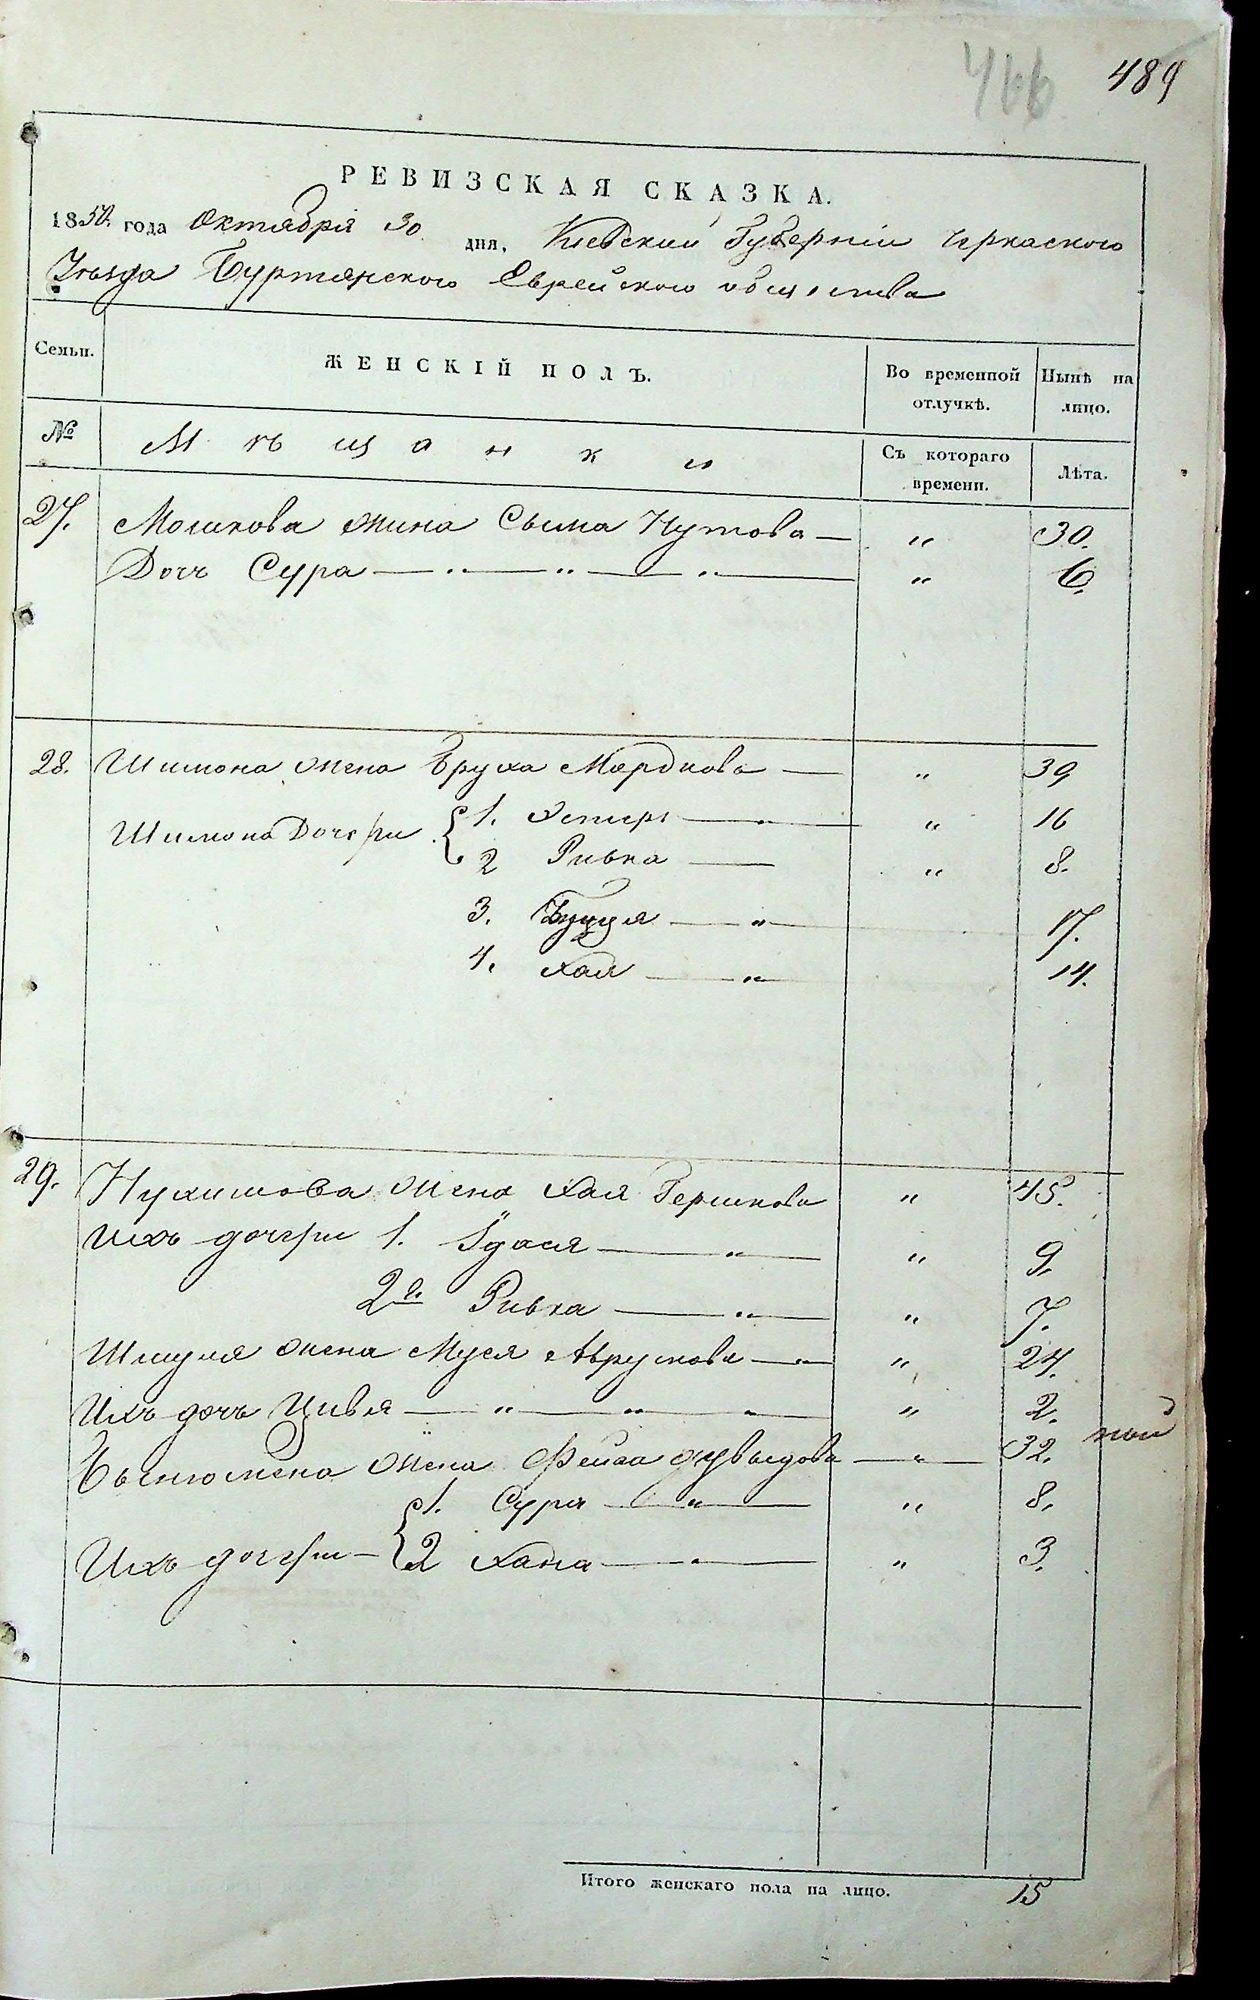 466 489
РЕВИЗСКАЯ СКАЗКА.
1850 года Октября 30 дня, Киевской Губерніи Черкаского
Уѣзда Буртянского Еврейского общества
Семьи. ЖЕНСКІЙ ПОЛЪ. Во временной отлучкѣ. Нынѣ на лицо.
№ Мѣщанки Съ котораго времени. Лѣта.
27. Мошкова жина Сыма Нутова — " 30.
Доч Сура — " — " — " — " 6.
28. Шимона жена Бруха Мордкова — " 39
Шимона Дочери { 1. Хстерь — " — " 16
2 Ривка — " 8.
3. — " — 17.
4. Хая — " 14.
29. Нухимова жена Хая Гершкова " 45.
Ихъ дочери 1. — " — " 9.
2я Ривка — " — " 7.
Шмуля жена Муся Аврумова — " — " 24.
Ихъ дочъ Цивля — " — " — " — " 2.
жена Фейга дувыдова — " — 32.
{ 1. Сура — " — " 8.
Ихъ дочери — 2 Хана — " — " 3.
Итого женскаго пола на лицо. 15